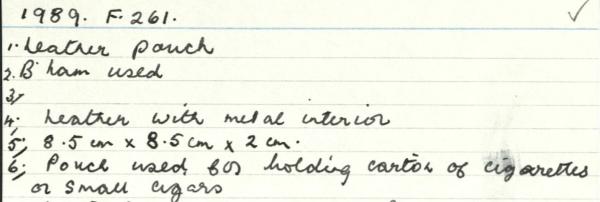 1989. F. 261.
1. Leather pouch
2. B'ham used
3,
4. Leather with metal interior
5, 8.5 cm x 8.5 cm x 2 cm.
6; Pouch used for holding carton of cigarettes
or small cigars